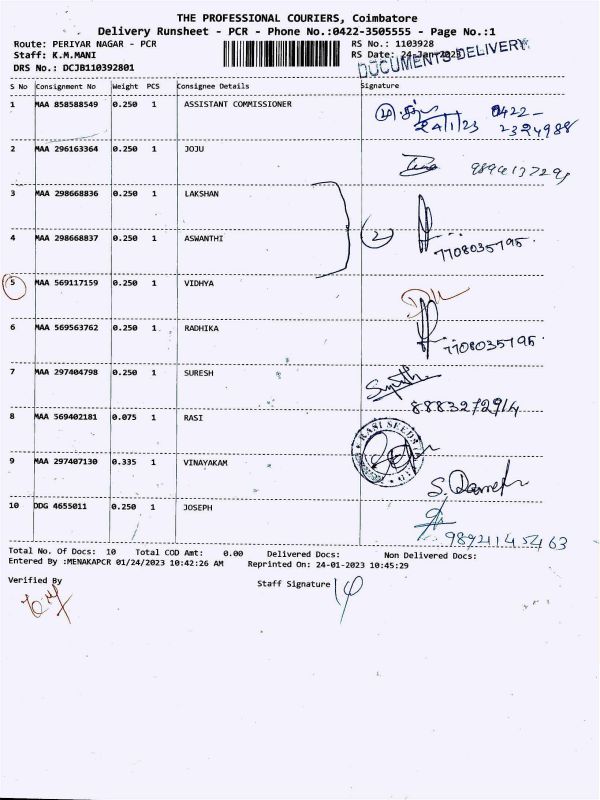 THE PROFESSIONAL COURIERS, Coimbatore
Delivery Runsheet - PCR - Phone No.:0422-3505555 - Page No.:1
Route: PERIYAR NAGAR - PCR RS No.: 1103928
Staff: K.M.MANI RS Date: 24-Jan-2023
DOCUMENTS DELIVERY
DRS No.: DCJB110392801
S No Consignment No Weight PCS Consignee Details Signature
1 MAA 858588549 0.250 1 ASSISTANT COMMISSIONER
24/1/23 0422-
2324988
2 MAA 296163364 0.250 1 JOJU
3 MAA 298668836 0.250 1 LAKSHAN
4 MAA 298668837 0.250 1 ASWANTHI 2
7708035195
5 MAA 569117159 0.250 1 VIDHYA
6 MAA 569563762 0.250 1 RADHIKA
7708035195
7 MAA 297404798 0.250 1 SURESH
8883272914
8 MAA 569402181 0.075 1 RASI
RASI SEEDS
9 MAA 297407130 0.335 1 VINAYAKAM
10 DDG 4655011 0.250 1 JOSEPH
9894145463
Total No. Of Docs: 10 Total COD Amt: 0.00 Delivered Docs: Non Delivered Docs:
Entered By :MENAKAPCR 01/24/2023 10:42:26 AM Reprinted On: 24-01-2023 10:45:29
Verified By Staff Signature